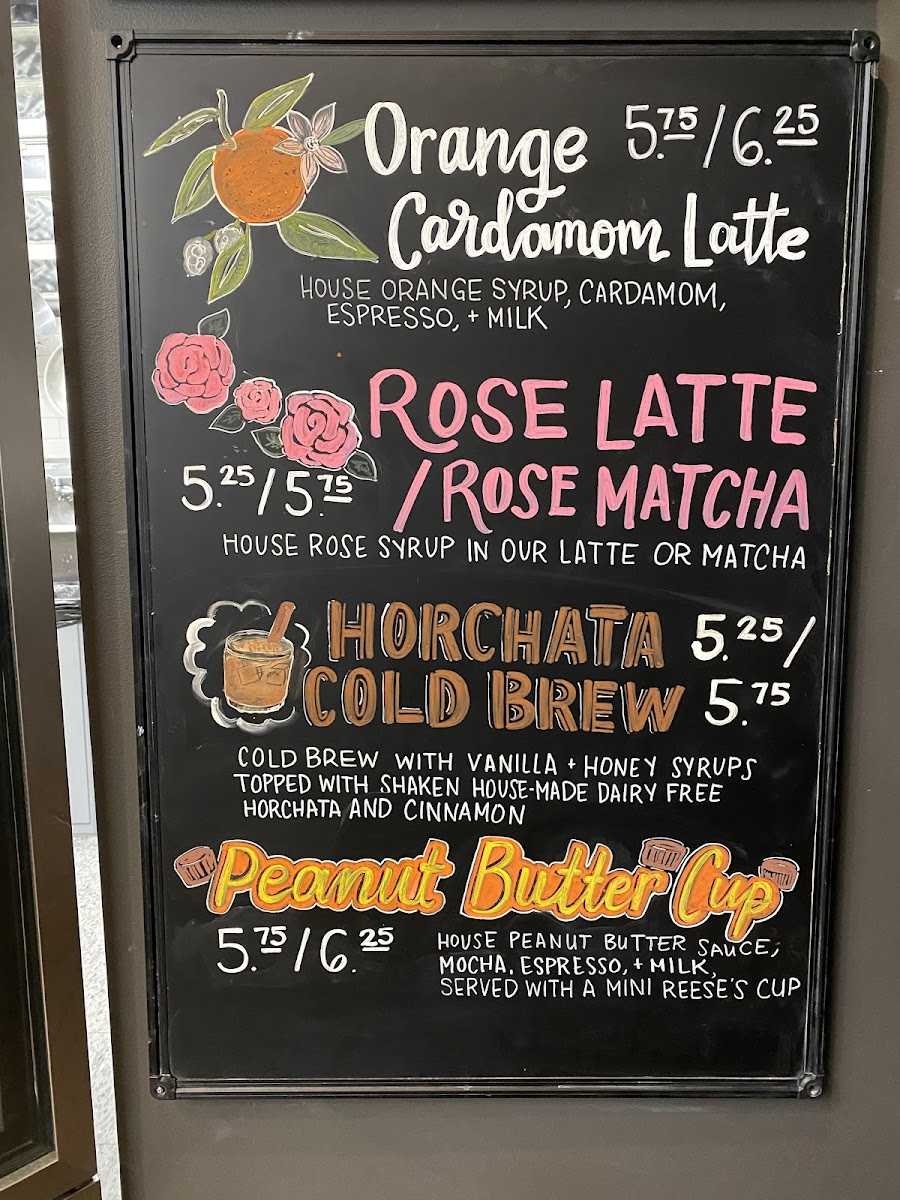 Orange 5.75/6.25
Cardamom Latte
HOUSE ORANGE SYRUP, CARDAMOM,
ESPRESSO, + MILK
ROSE LATTE
5.25/5.75 /ROSE MATCHA
HOUSE ROSE SYRUP IN OUR LATTE OR MATCHA
HORCHATA 5.25/
COLD BREW 5.75
COLD BREW WITH VANILLA + HONEY SYRUPS
TOPPED WITH SHAKEN HOUSE-MADE DAIRY FREE
HORCHATA AND CINNAMON
Peanut Butter Cup
5.75/6.25 HOUSE PEANUT BUTTER SAUCE,
MOCHA, ESPRESSO, + MILK,
SERVED WITH A MINI REESE'S CUP